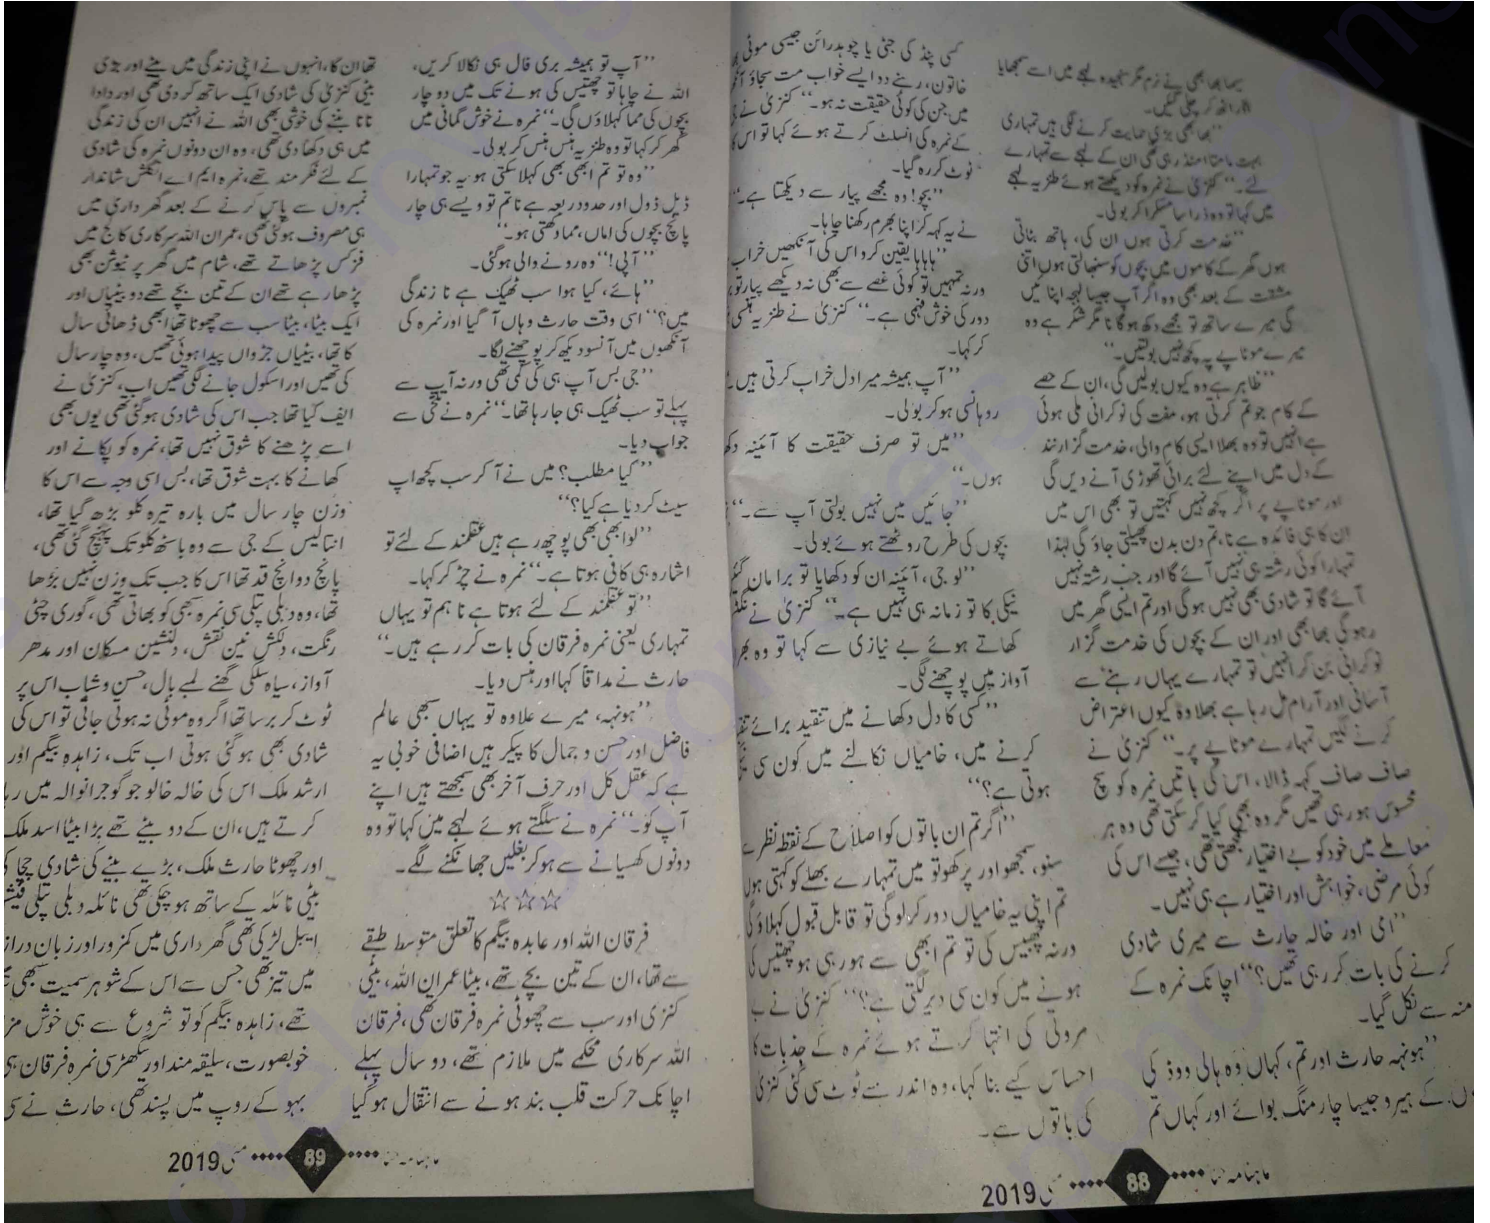 سیما بھابھی نے نرم مگر سنجیدہ لہجے میں اسے سمجھایا
اور اٹھ کر چلی گئیں۔
’’بھابھی بڑی حمایت کرنے لگی ہیں تمہاری
بہت مامتا امنڈ رہی تھی ان کے لہجے سے تمہارے
لئے۔‘‘ کنزیٰ نے نمرہ کو دیکھتے ہوئے طنزیہ لہجے
میں کہا تو وہ ذرا سا مسکرا کر بولی۔
’’خدمت کرتی ہوں ان کی، ہاتھ بٹاتی
ہوں گھر کے کاموں میں بچوں کو سنبھالتی ہوں اتنی
مشقت کے بعد بھی وہ اگر آپ جیسا لہجہ اپنائیں
گی میرے ساتھ تو مجھے دکھ ہوگا نا مگر شکر ہے وہ
میرے موٹاپے پہ کچھ نہیں بولتیں۔‘‘
’’ظاہر ہے وہ کیوں بولیں گی، ان کے حصے
کے کام جو تم کرتی ہو، مفت کی نوکرانی ملی ہوئی
ہے انہیں تو وہ بھلا ایسی کام والی، خدمت گزار نند
کے دل میں اپنے لئے برائی تھوڑی آنے دیں گی
اور موٹاپے پر اگر کچھ نہیں کہتیں تو بھی اس میں
ان کا ہی فائدہ ہے نا، تم دن بدن پھیلتی جاؤ گی لہٰذا
تمہارا کوئی رشتہ ہی نہیں آئے گا اور جب رشتہ نہیں
آئے گا تو شادی بھی نہیں ہوگی اور تم ایسی گھر میں
رہو گی بھابھی اور ان کے بچوں کی خدمت گزار
نوکرانی بن کر انہیں تو تمہارے یہاں رہنے سے
آسانی اور آرام مل رہا ہے بھلا وہ کیوں اعتراض
کرنے لگیں تمہارے موٹاپے پر۔‘‘ کنزیٰ نے
صاف صاف کہہ ڈالا، اس کی باتیں نمرہ کو سچ
محسوس ہو رہی تھیں مگر وہ بھی کیا کر سکتی تھی وہ ہر
معاملے میں خود کو بے اختیار سمجھتی تھی، جیسے اس کی
کوئی مرضی، خواہش اور اختیار ہے ہی نہیں۔
’’امی اور خالہ حارث سے میری شادی
کرنے کی بات کر رہی تھیں؟‘‘ اچانک نمرہ کے
منہ سے نکل گیا۔
’’ہونہہ حارث اور تم، کہاں وہ ہالی ووڈ کی
کے ہیرو جیسا چارمنگ بوائے اور کہاں تم
کسی پنڈ کی جٹی یا چوہدرائن جیسی موٹی
خاتون، رہنے دو ایسے خواب مت سجاؤ
میں جن کی کوئی حقیقت نہ ہو۔‘‘ کنزیٰ نے
کے نمرہ کی انسلٹ کرتے ہوئے کہا تو اس کا
نوٹ کر رہ گیا۔
’’بچو! وہ مجھے پیار سے دیکھتا ہے۔‘‘
نے یہ کہہ کر اپنا بھرم رکھنا چاہا۔
’’ہاہاہا یقین کرو اس کی آنکھیں خراب
ورنہ تمہیں تو کوئی غصے سے بھی نہ دیکھے پیار تو
دور کی خوش فہمی ہے۔‘‘ کنزیٰ نے طنزیہ ہنسی
کر کہا۔
’’آپ ہمیشہ میرا دل خراب کرتی ہیں۔
روہانسی ہو کر بولی۔
’’میں تو صرف حقیقت کا آئینہ
ہوں۔‘‘
’’جائیں میں نہیں بولتی آپ سے۔‘‘
بچوں کی طرح روٹھتے ہوئے بولی۔
’’لو جی، آئینہ ان کو دکھایا تو برا مان گئے
نیکی کا تو زمانہ ہی نہیں ہے۔‘‘ کنزیٰ نے
کھاتے ہوئے بے نیازی سے کہا تو وہ
آواز میں پوچھنے لگی۔
’’کسی کا دل دکھانے میں تنقید برائے
کرنے میں، خامیاں نکالنے میں کون سی
ہوتی ہے؟‘‘
’’اگر تم ان باتوں کو اصلاح کے نقطہ نظر سے
سنو، سمجھو اور پرکھو تو میں تمہارے بھلے کو کہتی ہوں
تم اپنی یہ خامیاں دور کر لو گی تو قابل قبول کہلاؤ گی
ورنہ چھبیس کی تو تم ابھی سے ہو رہی ہو چھتیس کی
ہونے میں کون سی دیر لگتی ہے؟‘‘ کنزیٰ نے بے
مروتی کی انتہا کرتے ہوئے نمرہ کے جذبات کا
احساس کیے بنا کہا، وہ اندر سے ٹوٹ سی گئی کنزیٰ
کی باتوں سے۔
ماہنامہ حنا 88 مئی 2019
’’آپ تو ہمیشہ بری فال ہی نکالا کریں،
اللہ نے چاہا تو چھتیس کی ہونے تک میں دو چار
بچوں کی مما کہلاؤں گی۔‘‘ نمرہ نے خوش گمانی میں
گھر کر کہا تو وہ طنزیہ ہنس ہنس کر بولی۔
’’وہ تو تم ابھی بھی کہلا سکتی ہو یہ جو تمہارا
ڈیل ڈول اور حدود ربعہ ہے نا تم تو ویسے ہی چار
پانچ بچوں کی اماں، مما دکھتی ہو۔‘‘
’’آپی!‘‘ وہ رونے والی ہوگئی۔
’’ہائے، کیا ہوا سب ٹھیک ہے نا زندگی
میں؟‘‘ اسی وقت حارث وہاں آ گیا اور نمرہ کی
آنکھوں میں آنسو دیکھ کر پوچھنے لگا۔
’’جی بس آپ ہی کی کمی تھی ورنہ آپ سے
پہلے تو سب ٹھیک ہی جا رہا تھا۔‘‘ نمرہ نے تلخی سے
جواب دیا۔
’’کیا مطلب؟ میں نے آ کر سب کچھ اپ
سیٹ کر دیا ہے کیا؟‘‘
’’لو ابھی بھی پوچھ رہے ہیں عقلمند کے لئے تو
اشارہ ہی کافی ہوتا ہے۔‘‘ نمرہ نے چڑ کر کہا۔
’’تو عقلمند کے لئے ہوتا ہے نا ہم تو یہاں
تمہاری یعنی نمرہ فرقان کی بات کر رہے ہیں۔‘‘
حارث نے مذاقا کہا اور ہنس دیا۔
’’ہونہہ، میرے علاوہ تو یہاں سبھی عالم
فاضل اور حسن و جمال کا پیکر ہیں اضافی خوبی یہ
ہے کہ عقل کل اور حرف آخر بھی سمجھتے ہیں اپنے
آپ کو۔‘‘ نمرہ نے سلگتے ہوئے لہجے میں کہا تو وہ
دونوں کھسیانے سے ہو کر بغلیں جھانکنے لگے۔
☆☆☆
فرقان اللہ اور عابدہ بیگم کا تعلق متوسط طبقے
سے تھا، ان کے تین بچے تھے، بیٹا عمران اللہ، بیٹی
کنزی اور سب سے چھوٹی نمرہ فرقان تھی، فرقان
اللہ سرکاری محکمے میں ملازم تھے، دو سال پہلے
اچانک حرکت قلب بند ہونے سے انتقال ہو گیا
تھا ان کا، انہوں نے اپنی زندگی میں بیٹے اور بڑی
بیٹی کنزیٰ کی شادی ایک ساتھ کر دی تھی اور دادا
نانا بننے کی خوشی بھی اللہ نے انہیں ان کی زندگی
میں ہی دکھا دی تھی، وہ ان دونوں نمرہ کی شادی
کے لئے فکر مند تھے، نمرہ ایم اے انگلش شاندار
نمبروں سے پاس کرنے کے بعد گھر داری میں
ہی مصروف ہوگئی تھی، عمران اللہ سرکاری کالج میں
فزکس پڑھاتے تھے، شام میں گھر پر ٹیوشن بھی
پڑھا رہے تھے ان کے تین بچے تھے دو بیٹیاں اور
ایک بیٹا، بیٹا سب سے چھوٹا تھا ابھی ڈھائی سال
کا تھا، بیٹیاں جڑواں پیدا ہوئی تھیں، وہ چار سال
کی تھیں اور اسکول جانے لگی تھیں اب، کنزیٰ نے
ایف کیا تھا جب اس کی شادی ہوگئی تھی یوں بھی
اسے پڑھنے کا شوق نہیں تھا، نمرہ کو پکانے اور
کھانے کا بہت شوق تھا، بس اسی وجہ سے اس کا
وزن چار سال میں بارہ تیرہ کلو بڑھ گیا تھا،
انتالیس کے جی سے وہ باسٹھ کلو تک پہنچ گئی تھی،
پانچ دو انچ قد تھا اس کا جب تک وزن نہیں بڑھا
تھا، وہ دبلی پتلی سی نمرہ سبھی کو بھاتی تھی، گوری چٹی
رنگت، دلکش نین نقش، دلنشین مسکان اور مدھر
آواز، سیاہ سلکی گھنے لمبے بال، حسن و شباب اس پر
ٹوٹ کر برسا تھا اگر وہ موٹی نہ ہوتی جاتی تو اس کی
شادی بھی ہوگئی ہوتی اب تک، زاہدہ بیگم اور
ارشد ملک اس کی خالہ خالو جو گوجرانوالہ میں رہا
کرتے ہیں، ان کے دو بیٹے تھے بڑا بیٹا اسد ملک
اور چھوٹا حارث ملک، بڑے بیٹے کی شادی چچا کی
بیٹی نائلہ کے ساتھ ہو چکی تھی نائلہ دبلی پتلی فیش
ایبل لڑکی تھی گھر داری میں کمزور اور زبان دراز
میں تیز تھی جس سے اس کے شوہر سمیت سبھی
تھے، زاہدہ بیگم کو تو شروع سے ہی خوش مز
خوبصورت، سلیقہ مند اور سگھڑ سی نمرہ فرقان ہی
بہو کے روپ میں پسند تھی، حارث نے سی
ماہنامہ حنا 89 مئی 2019